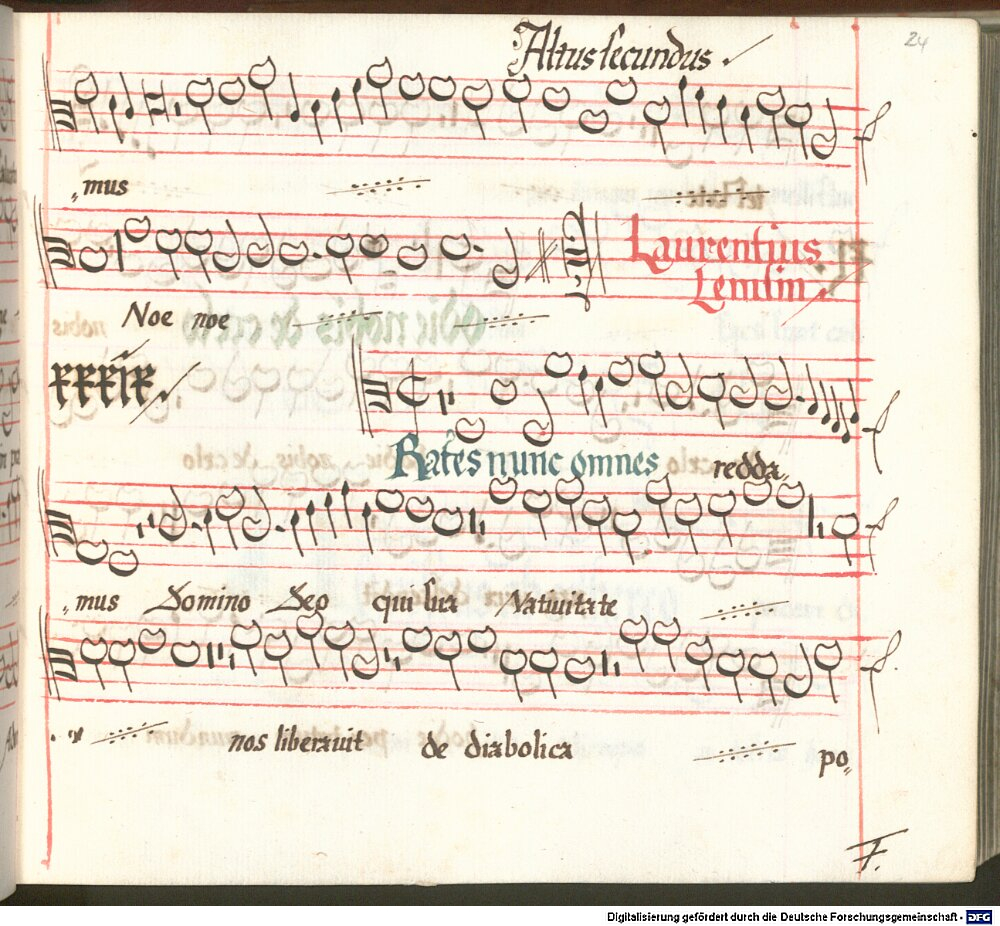 Altus secundus
24
mus
Noe noe
Laurentius
Lemlin
xxxix
Grates nunc omnes redda
mus Domino Deo qui sua Natiuitate
nos liberauit de diabolica po
F.
Digitalisierung gefördert durch die Deutsche Forschungsgemeinschaft - DFG